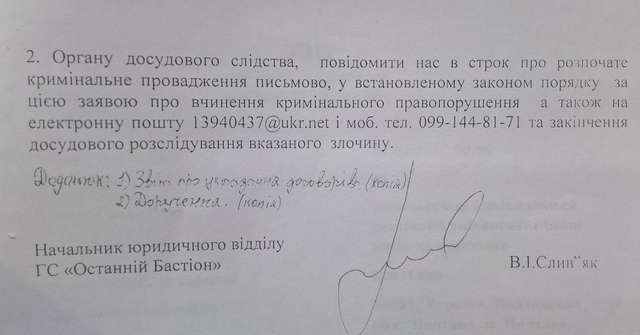 2. Органу досудового слідства, повідомити нас в строк про розпочате
кримінальне провадження письмово, у встановленому законом порядку за
цією заявою про вчинення кримінального правопорушення а також на
електронну пошту 13940437@ukr.net і моб. тел. 099-144-81-71 та закінчення
досудового розслідування вказаного злочину.
Додаток: 1) Звіт про укладання договорів. (копія)
2) Доручення. (копія)
Начальник юридичного відділу
ГС «Останній Бастіон»
В.І.Слив"як